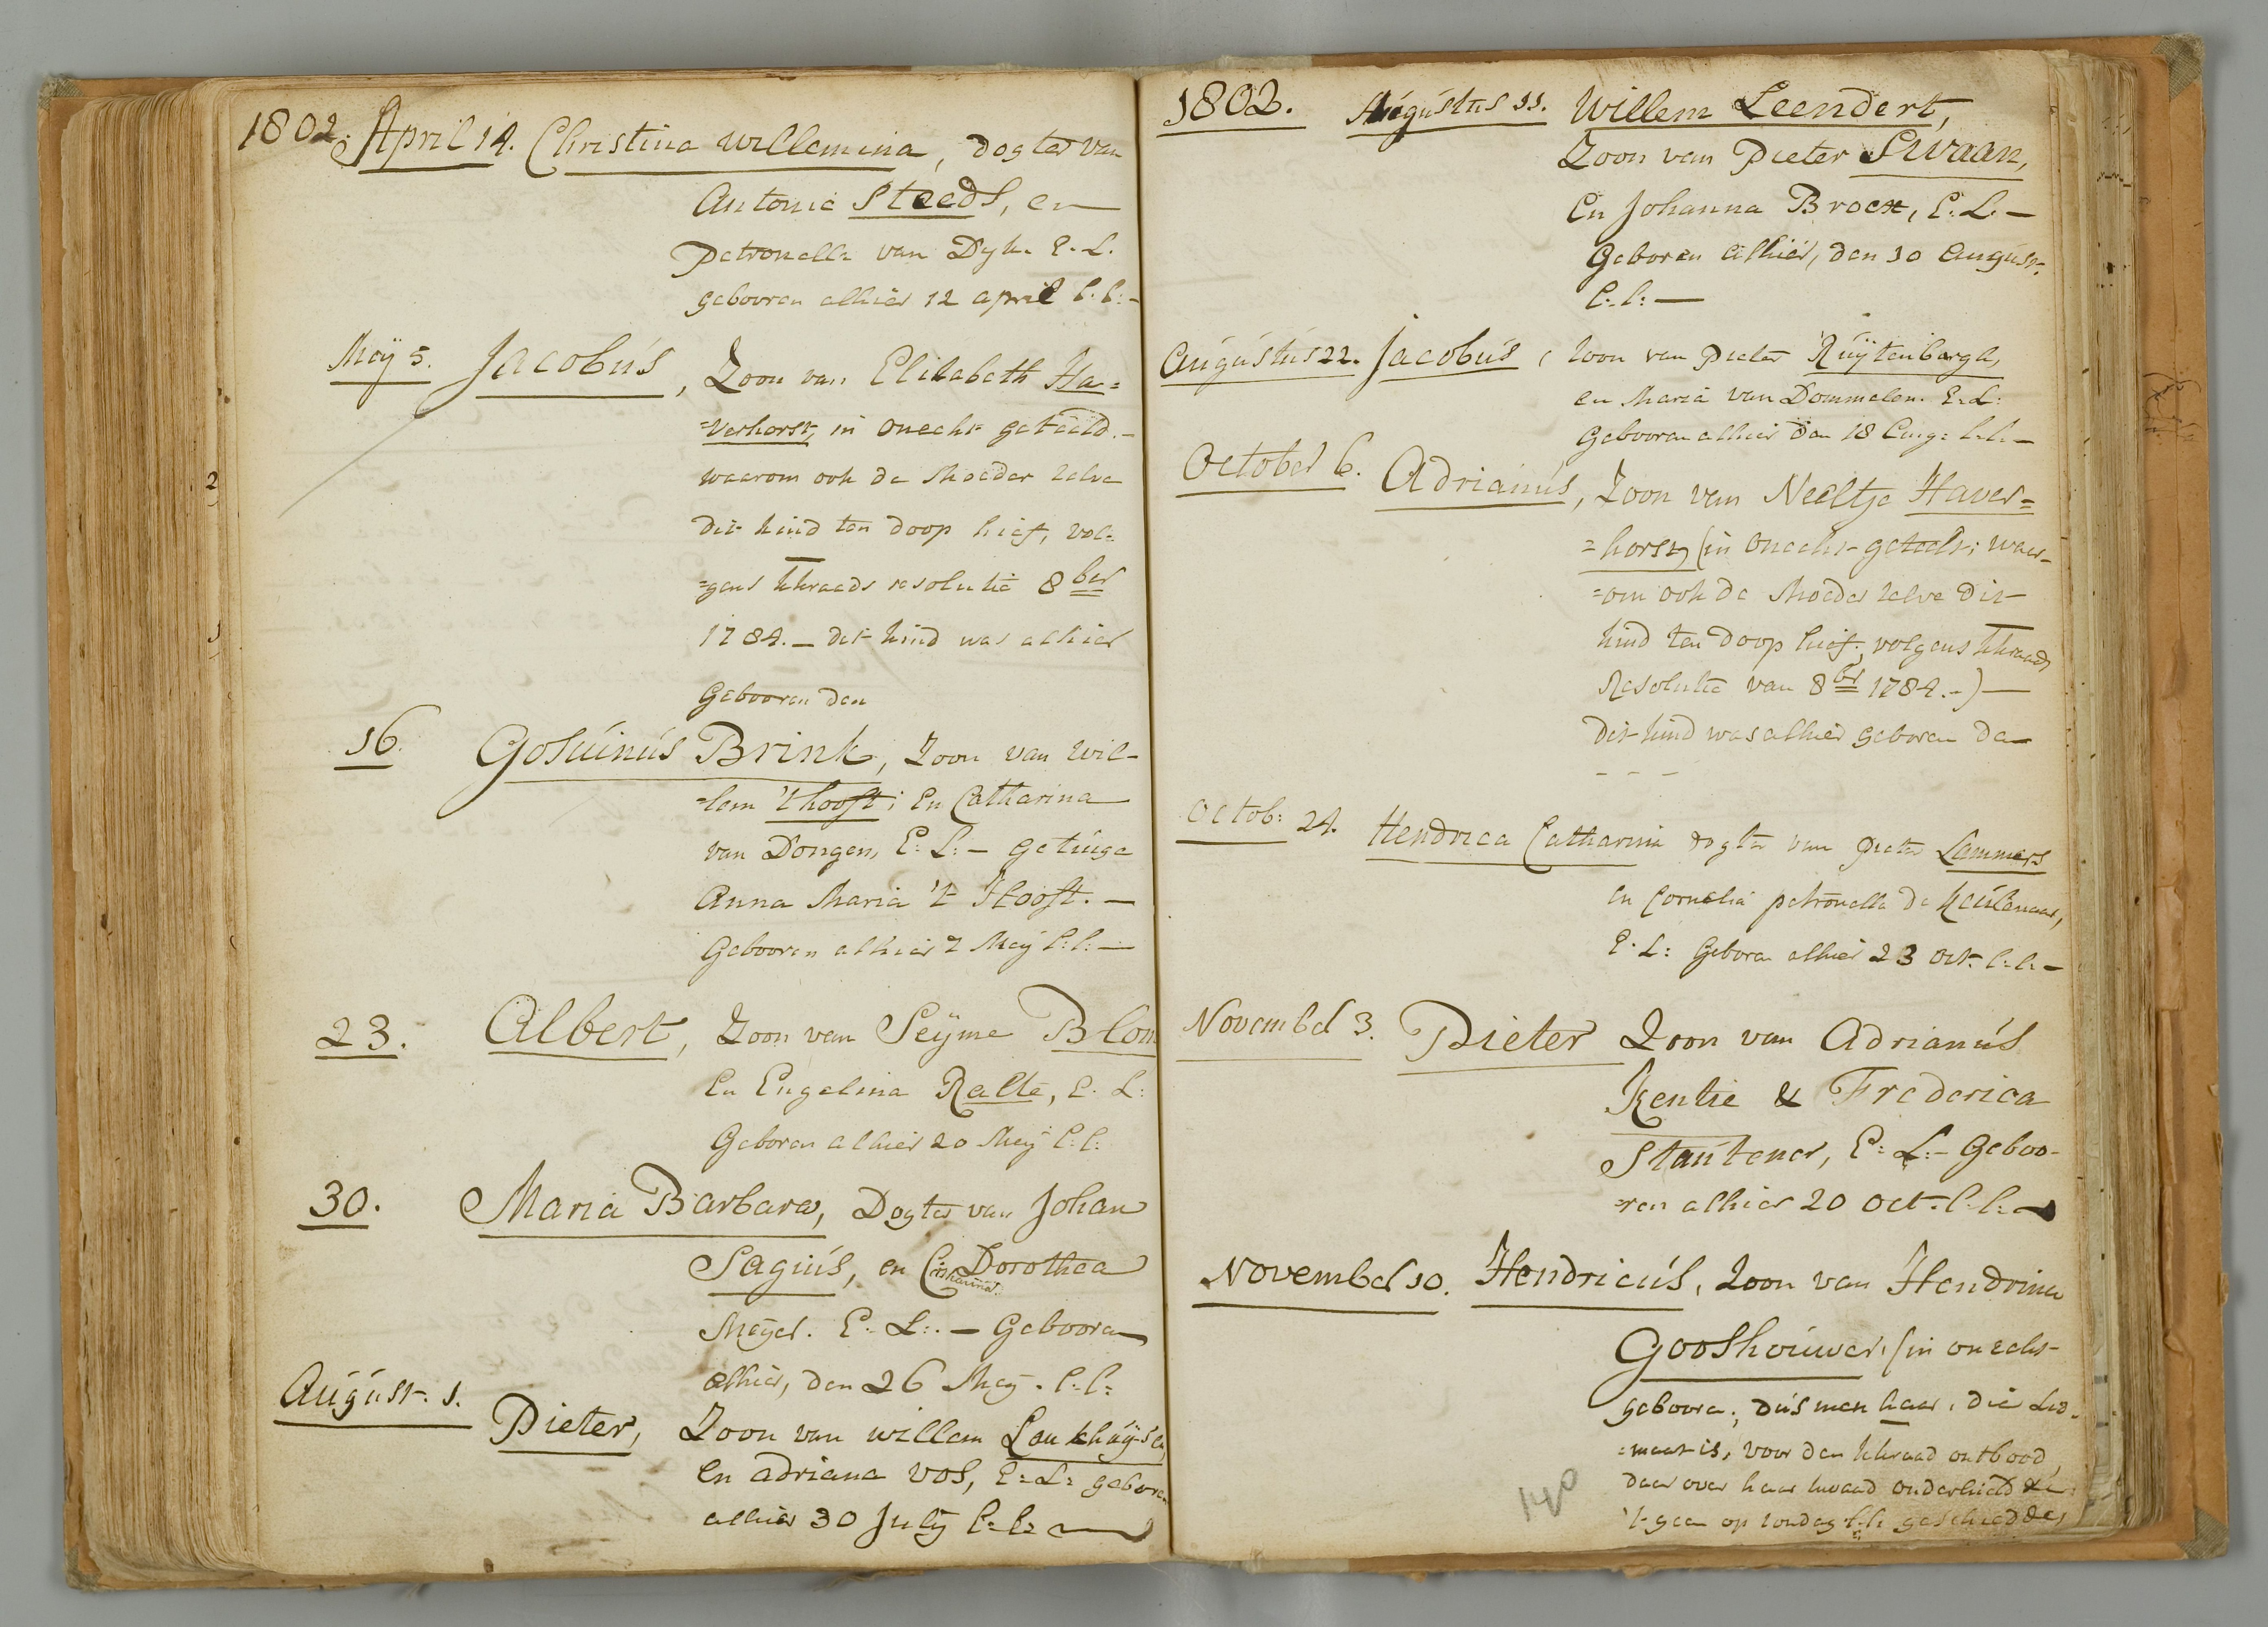 1802. April 14. Christina Willemina, dogter van
Antonie Steeds, en
Petronella van Dyk. E. L.
gebooren alhier 12 april l: l: -
Meÿ 5. Jacobús, Zoon van Elisabeth Ha=
=verhorst, in onecht geteeld. -
waarom ook de Moeder zelve
dit kind ten doop hief, vol=
=gens kkraads resolutie 8ber
1784. - dit kind was alhier
Gebooren den
16. Gosúinús Brink, Zoon van Wil-
=lem 't hooft; en Catharina
van Dongen, E: L: - getúige
Anna Maria 't Hooft. -
Gebooren alhier 7 Meÿ l: l: -
23. Albert, Zoon van Seÿme Blom
en Engelina Ralte, E. L:
Geboren alhier 20 Meÿ l: l:
30. Maria Barbara, Dogter van Johan
Sagiús, en Catharina Dorothea
Meÿer. E: L: - Gebooren
alhier, den 26 Meÿ. l: l:
Aúgúst. 1. Pieter, Zoon van willem Loukhúÿsen,
en adriana Vos, E: L: geboren
alhier 30 Julÿ l: l: -
1802. Aúgústús 11. Willem Leendert,
Zoon van Pieter Swaan,
en Johanna Broex, E: L. -
Geboren alhier, den 10 Augúst.
l: l: -
Aúgústús 22. Jacobús, zoon van Pieter Rúÿtenbergh,
en Maria van Dommelen. E: L:
Gebooren alhier den 18 Aug: l: l: -
October 6. Adrianús, Zoon van Neeltje Haver=
=horst, (in onecht geteelt; waar-
=om ook de Moeder zelve dit
kind ten doop hief, volgens kkraads
Resolutie van 8br 1784. -) -
dit kind was alhier geboren den
- - -
Octob: 24. Hendrica Catharina dogter van Pieter Lammers
en Cornelia petronella de Keúlenaar,
E. L: Geboren alhier 23 Oct. l: l: -
November 3. Pieter Zoon van Adrianús
Kentie & Frederica
Staútener, E: L: - Geboo-
=ren alhier 20 Oct. l: l: -
November 10. Hendricús, Zoon van Hendrina
Gooshoúwer, (in onecht
gebooren; dús men haar, die Led-
=maat is, voor den kkraad ontbood,
daar over haar kwaad onderhield &c:
't geen op zondag l: l: geschiedde,
140